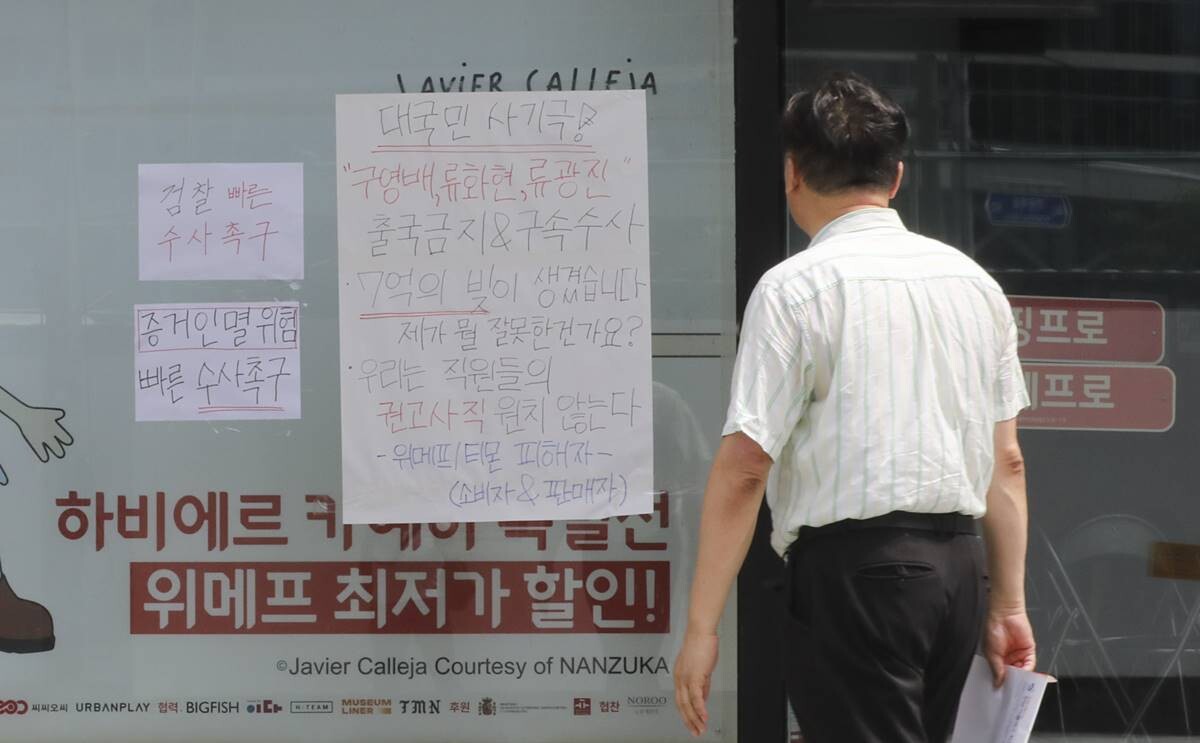 JAVIER CALLEJA
대국민 사기극!
"구영배,류화현,류광진"
출국금지&구속수사
·7억의 빚이 생겼습니다
제가 뭘 잘못한건가요?
·우리는 직원들의
권고사직 원치 않는다
-위메프/티몬 피해자-
(소비자 & 판매자)
검찰 빠른
수사촉구
증거인멸위험
빠른 수사촉구
하비에르
위메프 최저가 할인!
©Javier Calleja Courtesy of NANZUKA
씨씨오씨 URBANPLAY 협력 BIGFISH H-TEAM MUSEUM LINER TMN 후원 협찬 NOROO
핑프로
프로